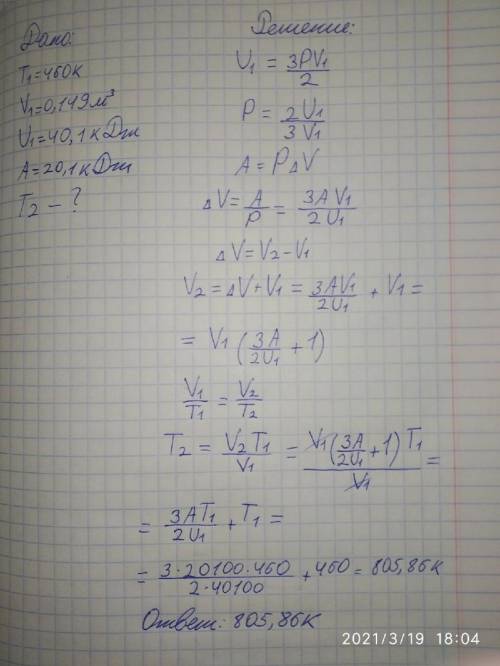 Дано:
T₁=460К
V₁=0,149м³
U₁=40,1кДж
A=20,1кДж
T₂ - ?
Решение:
U₁ = 3PV₁/2
P = 2U₁/3V₁
A = PΔV
ΔV = A/P = 3AV₁/2U₁
ΔV = V₂ - V₁
V₂ = ΔV + V₁ = 3AV₁/2U₁ + V₁ =
= V₁ (3A/2U₁ + 1)
V₁/T₁ = V₂/T₂
T₂ = V₂T₁/V₁ = V₁(3A/2U₁ + 1) T₁/V₁ =
= 3AT₁/2U₁ + T₁ =
= 3·20100·460/2·40100 + 460 = 805,86К
Ответ: 805,86К
2021/3/19 18:04